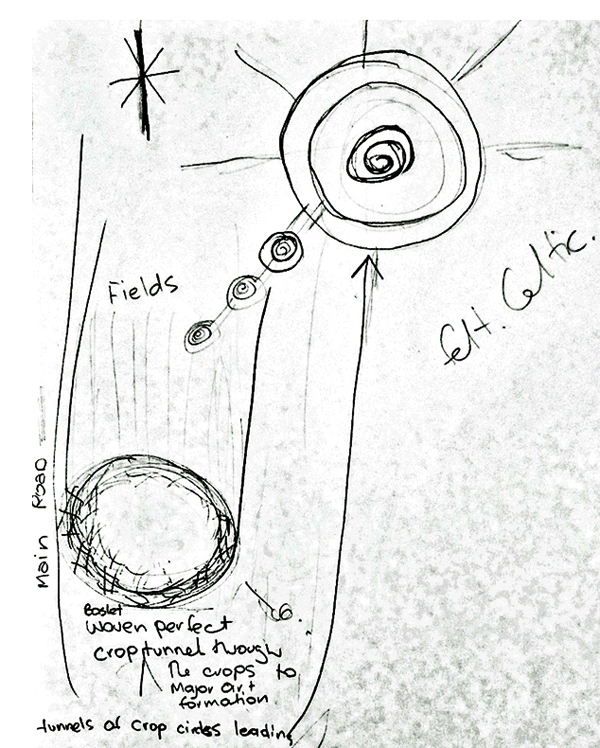 Fields
felt. Celtic.
Main Road
Basket
woven perfect
crop tunnel through
the crops to
Major Art
formation
tunnels of crop circles leading